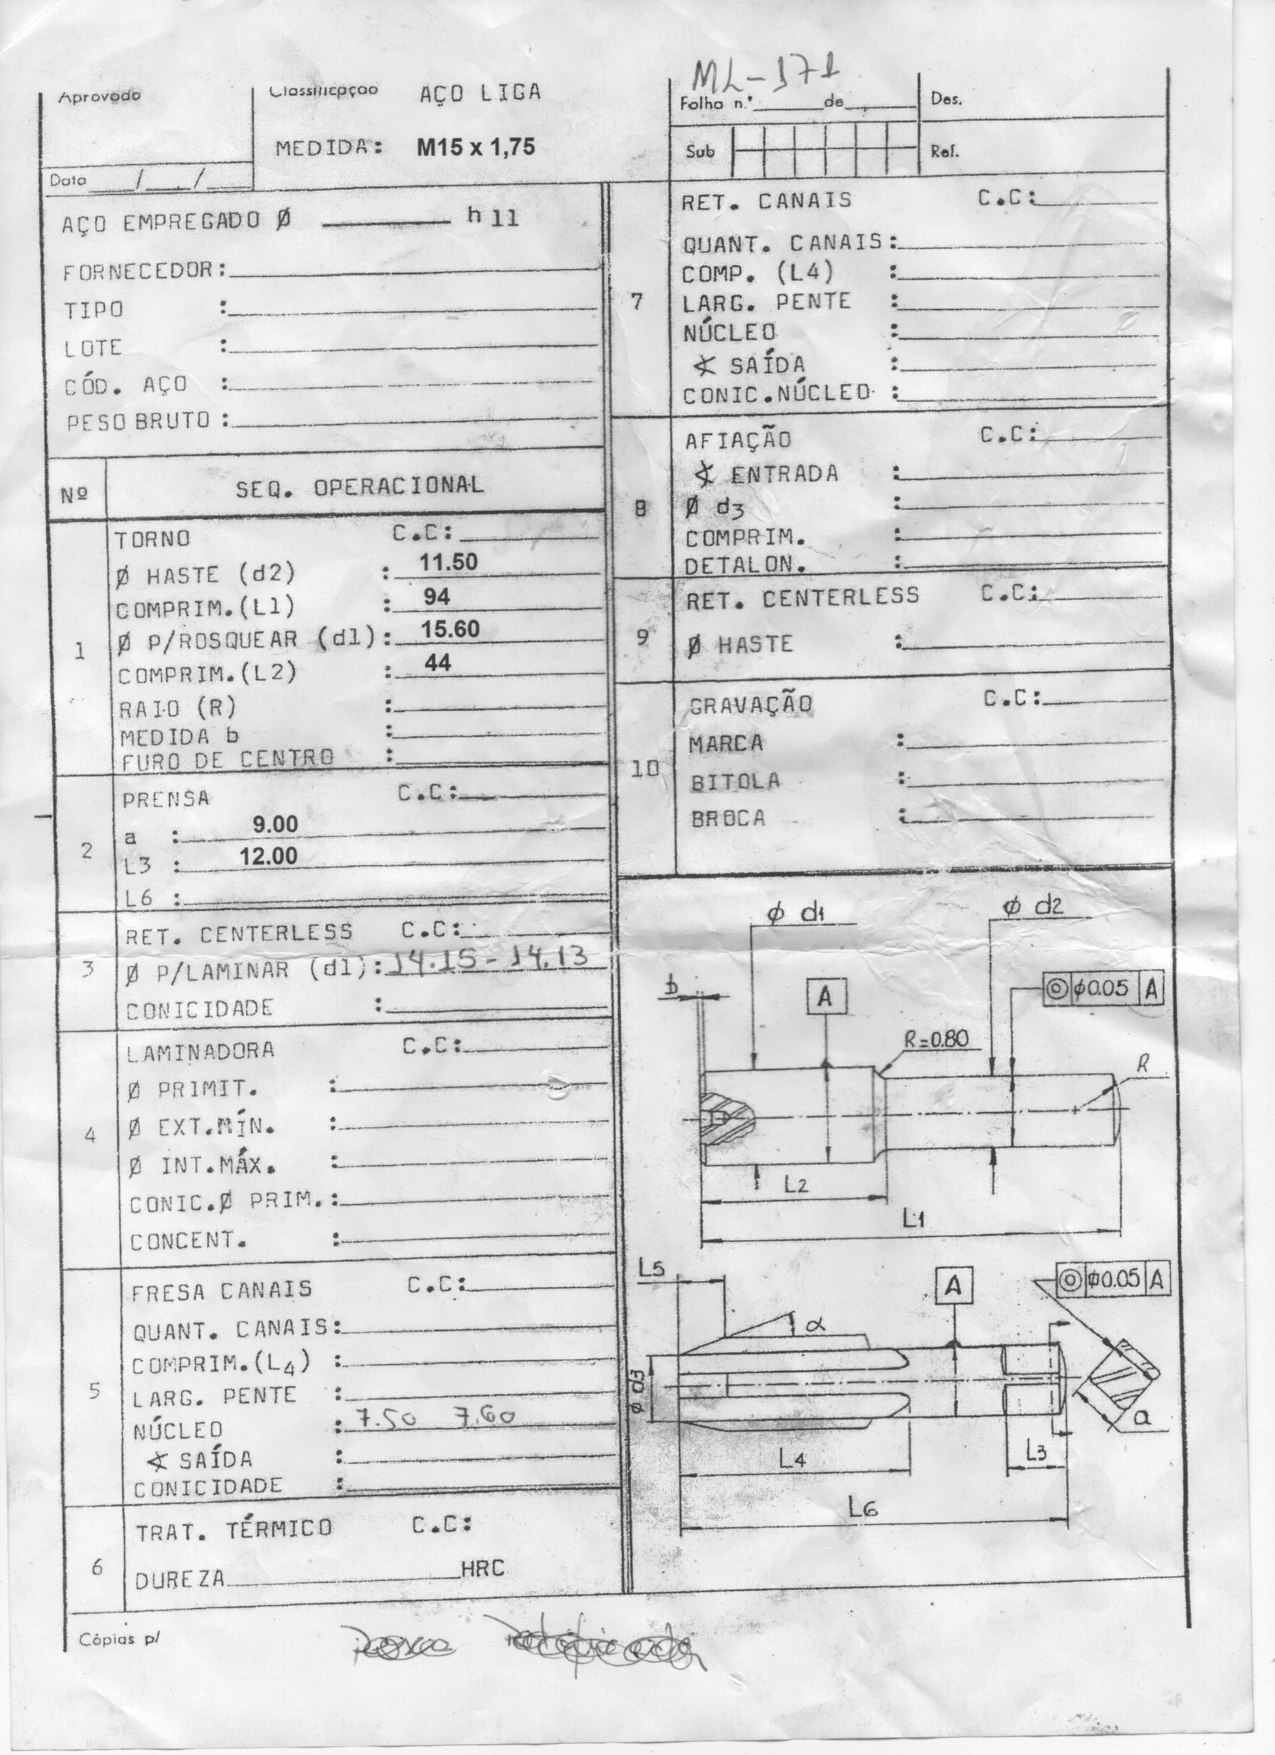 ML-171
Aprovado
Classificação AÇO LIGA
Folha n.º de
Des.
MEDIDA: M15 x 1,75
Sub
Ref.
Data / /
AÇO EMPREGADO Ø h 11
FORNECEDOR:
TIPO :
LOTE :
CÓD. AÇO :
PESO BRUTO :
Nº SEQ. OPERACIONAL
1
TORNO C.C:
Ø HASTE (d2) : 11.50
COMPRIM.(L1) : 94
Ø P/ROSQUEAR (d1): 15.60
COMPRIM.(L2) : 44
RAIO (R) :
MEDIDA b :
FURO DE CENTRO :
2
PRENSA C.C:
a : 9.00
L3 : 12.00
L6 :
3
RET. CENTERLESS C.C:
Ø P/LAMINAR (d1): 14.15 - 14.13
CONICIDADE :
4
LAMINADORA C.C:
Ø PRIMIT. :
Ø EXT.MÍN. :
Ø INT.MÁX. :
CONIC.Ø PRIM.:
CONCENT. :
5
FRESA CANAIS C.C:
QUANT. CANAIS:
COMPRIM.(L4) :
LARG. PENTE :
NÚCLEO : 7.50 7.60
∢ SAÍDA :
CONICIDADE :
6
TRAT. TÉRMICO C.C:
DUREZA HRC
7
RET. CANAIS C.C:
QUANT. CANAIS:
COMP. (L4) :
LARG. PENTE :
NÚCLEO :
∢ SAÍDA :
CONIC.NÚCLEO :
8
AFIAÇÃO C.C:
∢ ENTRADA :
Ø d3 :
COMPRIM. :
DETALON. :
9
RET. CENTERLESS C.C:
Ø HASTE :
10
GRAVAÇÃO C.C:
MARCA :
BITOLA :
BROCA :
Ø d1 Ø d2
b A ◎ Ø0.05 A
R=0.80 R
L2
L1
L5 A ◎ Ø0.05 A
α
Ø d3 a
L4 L3
L6
Cópias p/